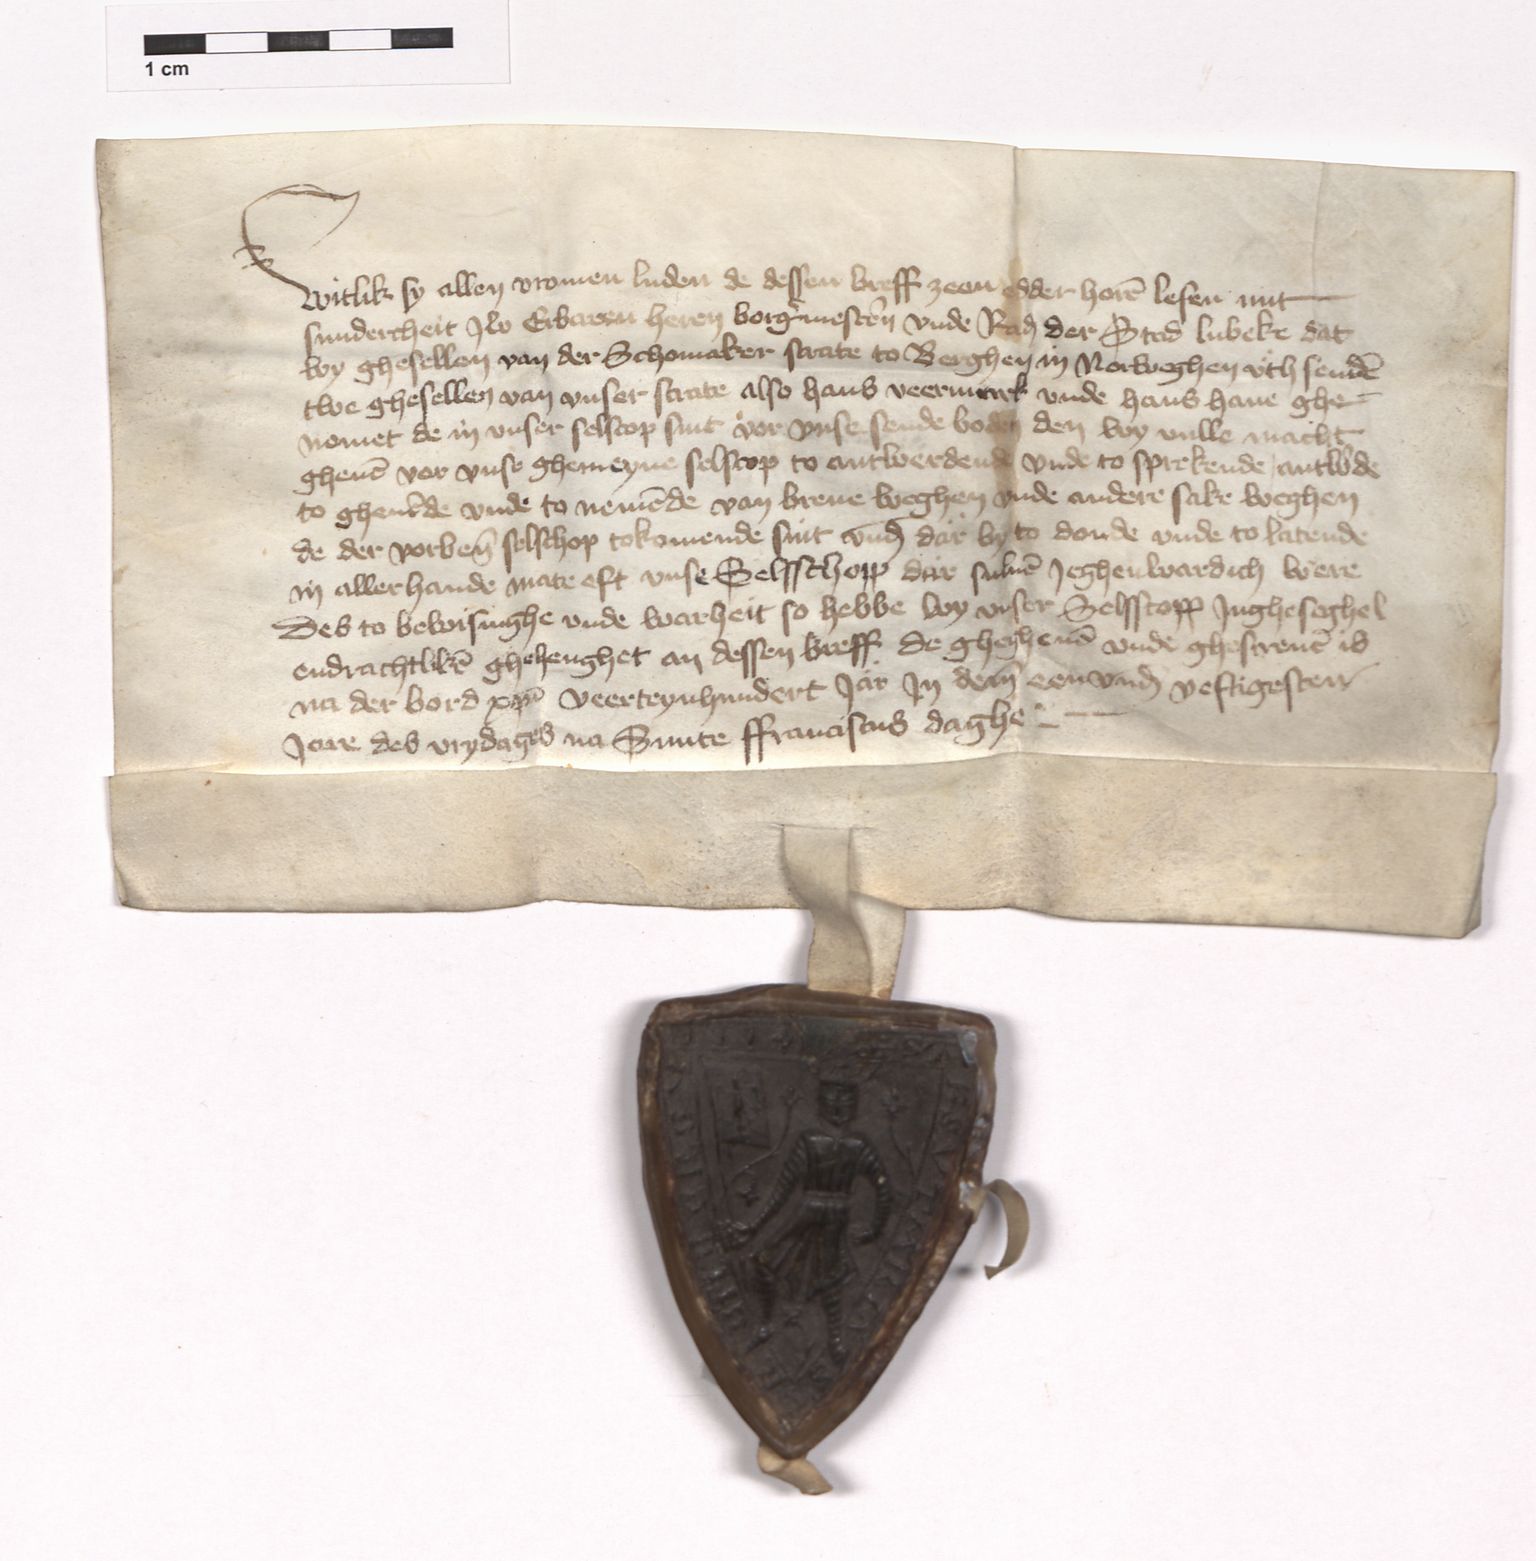 1 cm
Witlik sy allen vromen luden de dessen breff zeen edder horē lesen mit
sundercheit Jw Erbaren heren borḡmestern vnde Rad der Stad lubeke dat
wy ghesellen van der Schomaker strate to Berghen in Norweghen vth sendē
twe ghesellen van vnser strate also hans veermerk vnde hans haue ghe
nomet de in vnser selscop sint vor vnse sende boden den wy vulle macht
gheuē vor vnse ghemeyne selscop to antwerdende vnde to sprekende antw̄de
to gheuēde vnde to nemēde van breue weghen vnde andere sake weghen
de der vorben̄ selschop tokomende sint vnd dar by to donde vnde to latende
in allerhande mate eft vnse Selsschopp dar suluē Jeghenwardich were
Des to bewisinghe vnde warheit so hebbe wy vnser Selsscopp Jngheseghel
endrachtlikē ghehenghet an dessen breff De gheghenē vnde ghescreuē is
na der bord xp̄i veerteynhundert Jar Jn dem eenvnd veftigesten
Jare des vrydages na Sunte ffranciscus daghe